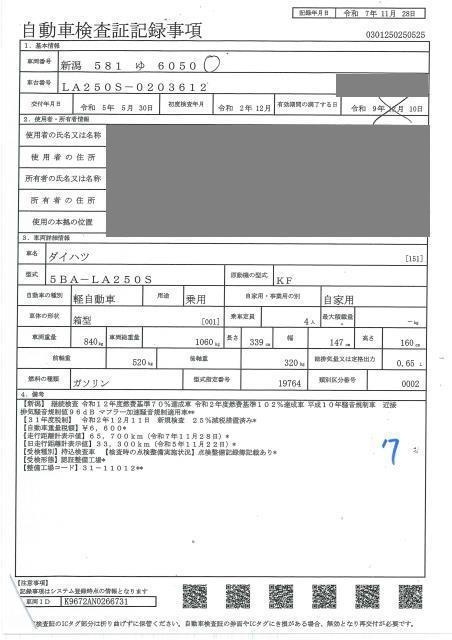 記録年月日 令和 7年11月 28日
自動車検査証記録事項
0301250250525
1. 基本情報
車両番号 新潟 581 ゆ 6050
車台番号 LA250S-0203612
交付年月日 令和 5年 5月 30日 初度検査年月 令和 2年 12月 有効期間の満了する日 令和 9年 12月 10日
2. 使用者・所有者情報
使用者の氏名又は名称
使用者の住所
所有者の氏名又は名称
所有者の住所
使用の本拠の位置
3. 車両詳細情報
車名 ダイハツ [151]
型式 5BA-LA250S 原動機の型式 KF
自動車の種別 軽自動車 用途 乗用 自家用・事業用の別 自家用
車体の形状 箱型 [001] 乗車定員 4人 最大積載量 -kg
車両重量 840kg 車両総重量 1060kg 長さ 339cm 幅 147cm 高さ 160cm
前軸重 520kg 後軸重 320kg 総排気量又は定格出力 0.65 L
燃料の種類 ガソリン 型式指定番号 19764 類別区分番号 0002
4. 備考
【新潟】 継続検査 令和12年度燃費基準70%達成車 令和2年度燃費基準102%達成車 平成10年騒音規制車 近接
排気騒音規制値96dB マフラー加速騒音規制適用車**
【31年度税制】 令和2年12月11日 新規検査 25%減税措置済み*
【自動車重量税額】 ¥6,600*
【走行距離計表示値】 65,700km(令和7年11月28日)*
【旧走行距離計表示値】 33,300km(令和5年11月22日)*
【受検種別】 持込検査車 【検査時の点検整備実施状況】 点検整備記録簿記載あり*
【受検形態】 認証整備工場*
【整備工場コード】 31-11012**
7
【注意事項】
記録事項はシステム登録時点の情報となります
車両ID K9672AN0266731
検査証のICタグ部分は折り曲げずに保管ください。自動車検査証の券面やICタグにき損がある場合、無効となり再交付が必要です。